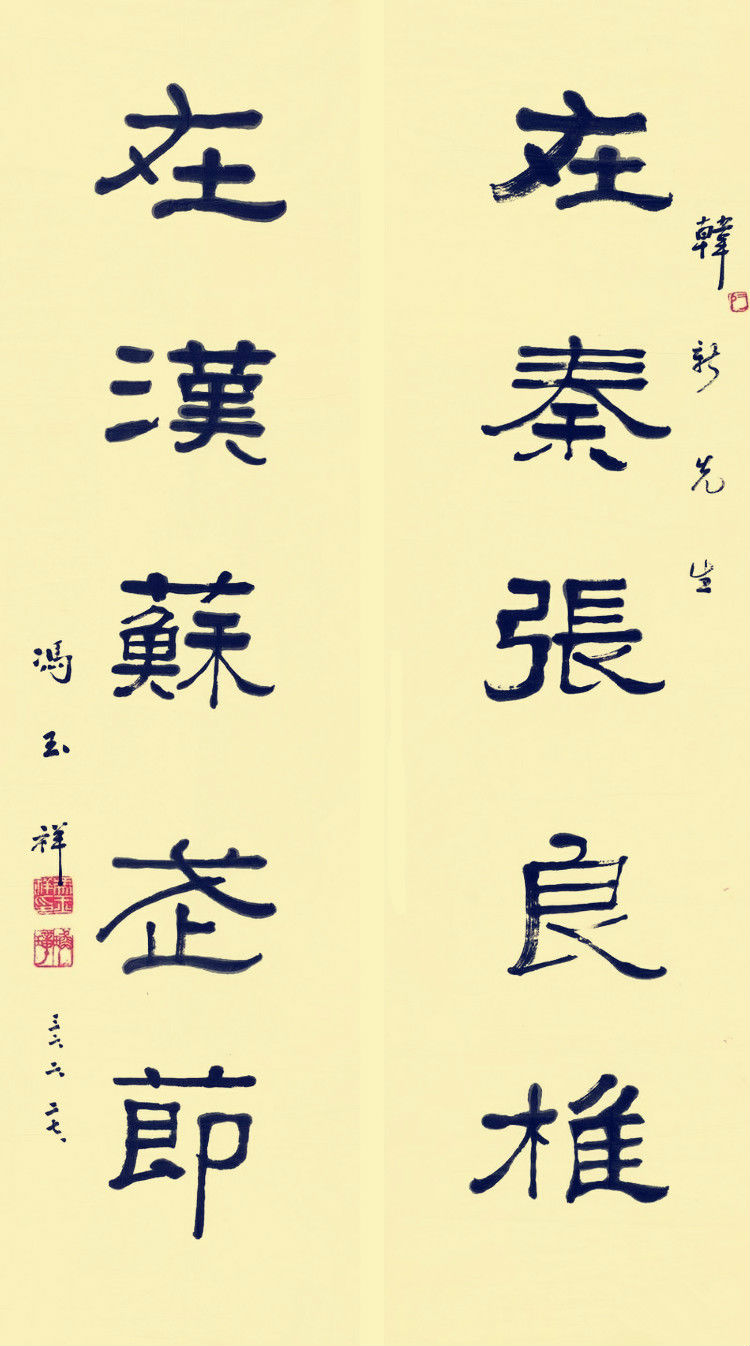 韓新先生
在秦張良椎
在漢蘇武節
馮玉祥
三六六二七、